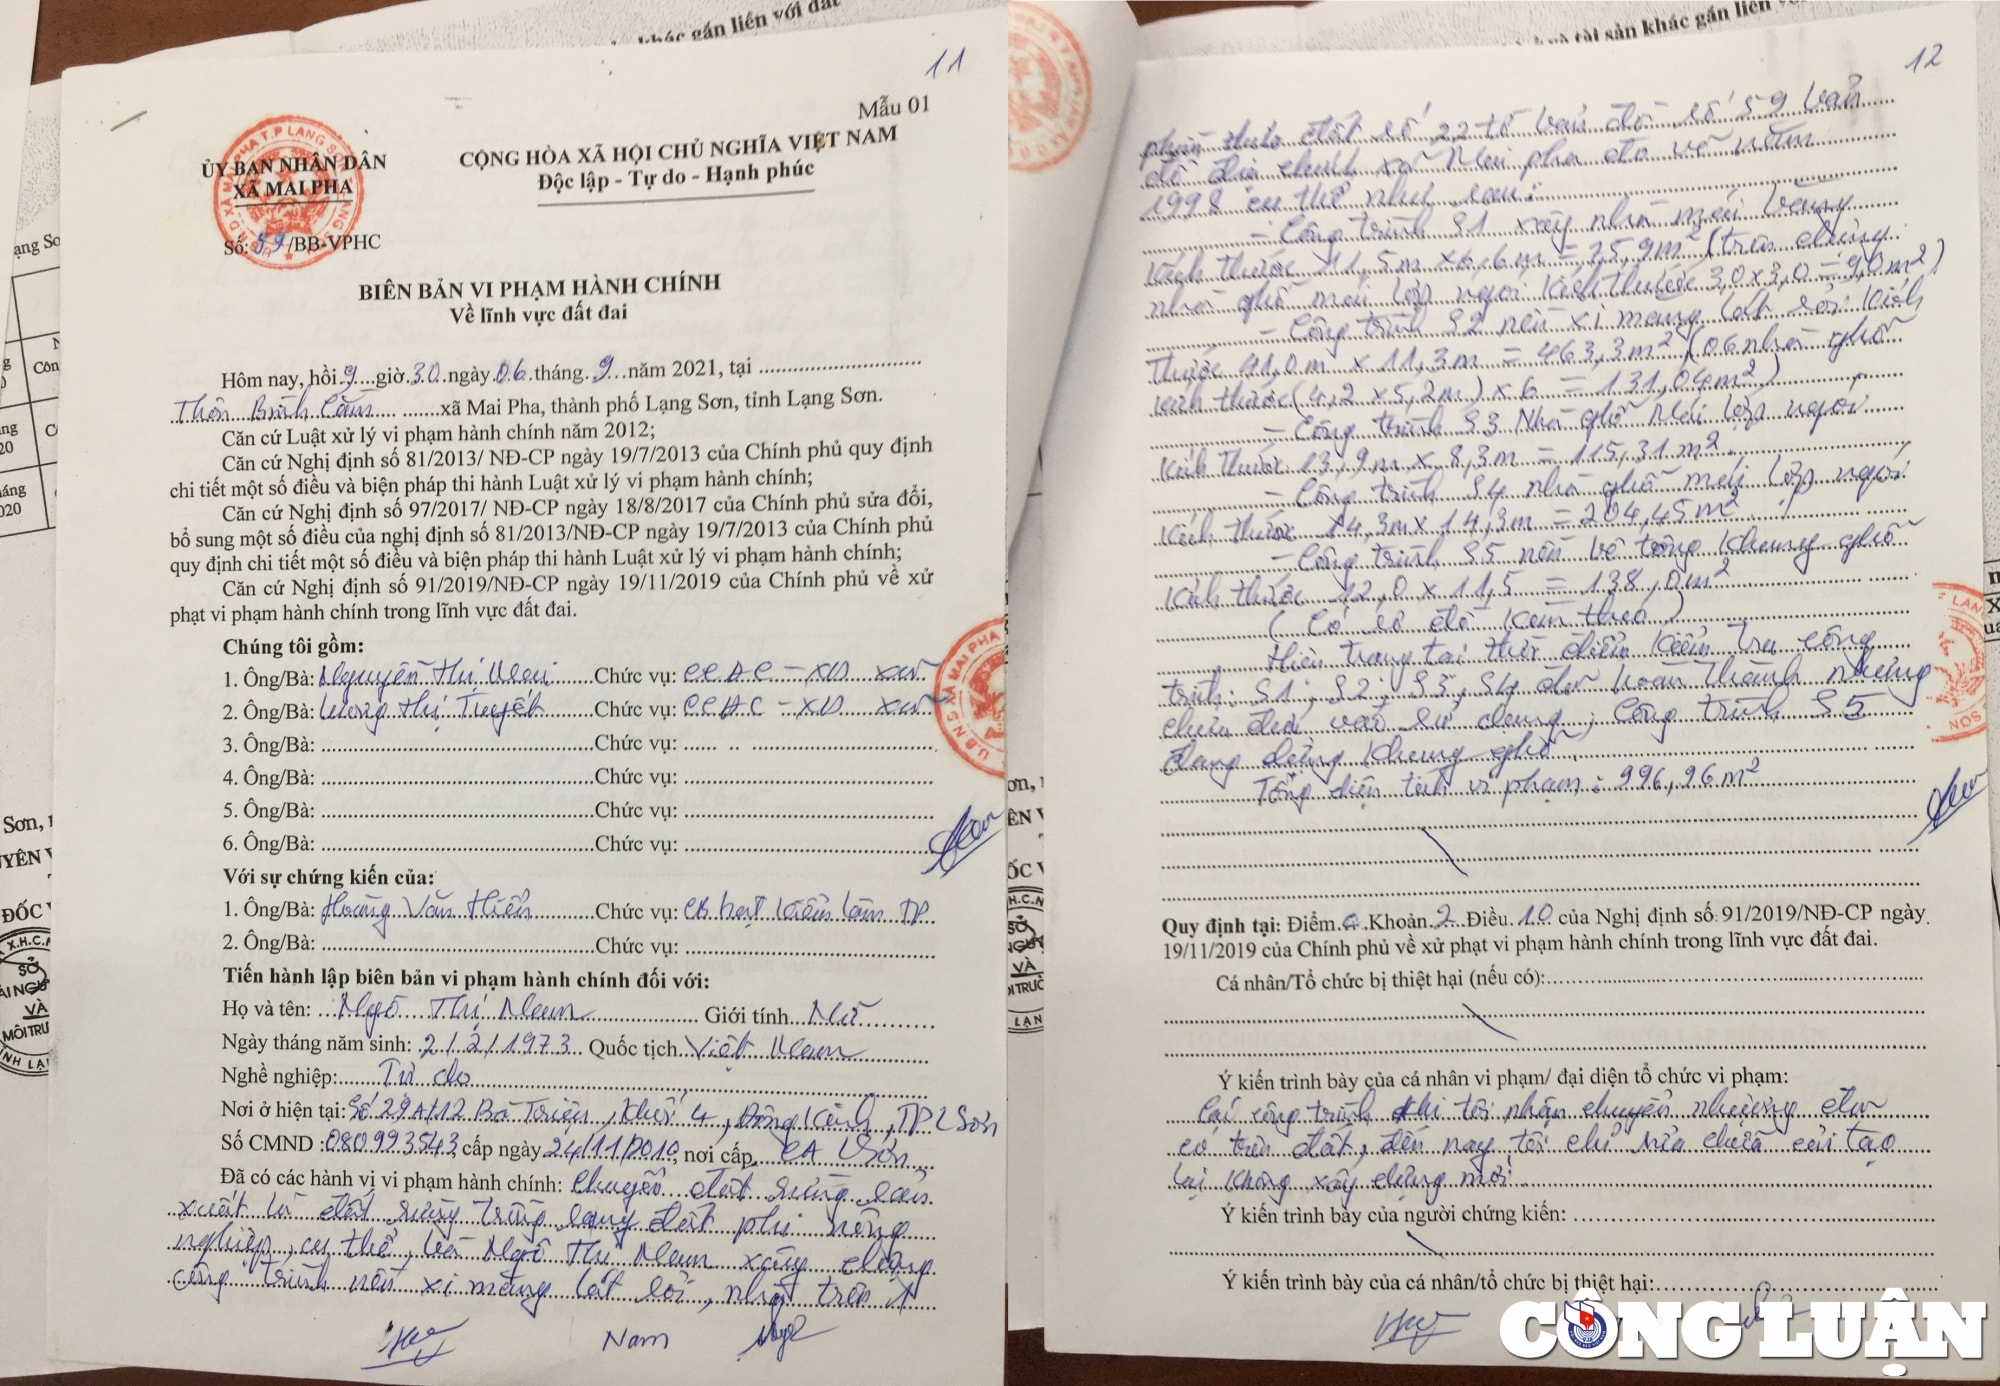 khác gắn liền với đất
11
Mẫu 01
ỦY BAN NHÂN DÂN
XÃ MAI PHA
CỘNG HÒA XÃ HỘI CHỦ NGHĨA VIỆT NAM
Độc lập - Tự do - Hạnh phúc
Số: 59/BB-VPHC
BIÊN BẢN VI PHẠM HÀNH CHÍNH
Về lĩnh vực đất đai
Hôm nay, hồi 9 giờ 30 ngày 06 tháng 9 năm 2021, tại
Thôn Bình Cầm xã Mai Pha, thành phố Lạng Sơn, tỉnh Lạng Sơn.
Căn cứ Luật xử lý vi phạm hành chính năm 2012;
Căn cứ Nghị định số 81/2013/ NĐ-CP ngày 19/7/2013 của Chính phủ quy định
chi tiết một số điều và biện pháp thi hành Luật xử lý vi phạm hành chính;
Căn cứ Nghị định số 97/2017/ NĐ-CP ngày 18/8/2017 của Chính phủ sửa đổi,
bổ sung một số điều của nghị định số 81/2013/NĐ-CP ngày 19/7/2013 của Chính phủ
quy định chi tiết một số điều và biện pháp thi hành Luật xử lý vi phạm hành chính;
Căn cứ Nghị định số 91/2019/NĐ-CP ngày 19/11/2019 của Chính phủ về xử
phạt vi phạm hành chính trong lĩnh vực đất đai.
Chúng tôi gồm:
1. Ông/Bà: Nguyễn Thị Mai Chức vụ: CCĐC - XD xã
2. Ông/Bà: Lương Thị Tuyết Chức vụ: CCĐC - XD xã
3. Ông/Bà: Chức vụ:
4. Ông/Bà: Chức vụ:
5. Ông/Bà: Chức vụ:
6. Ông/Bà: Chức vụ:
Với sự chứng kiến của:
1. Ông/Bà: Hoàng Văn Hiển Chức vụ: CB hạt kiểm lâm TP
2. Ông/Bà: Chức vụ:
Tiến hành lập biên bản vi phạm hành chính đối với:
Họ và tên: Ngô Thị Nam Giới tính Nữ
Ngày tháng năm sinh: 2/2/1973 Quốc tịch Việt Nam
Nghề nghiệp: Tự do
Nơi ở hiện tại: Số 29A/12 Bà Triệu, Khối 4, Đông Kinh, TP LSơn
Số CMND: 080993543 cấp ngày 24/11/2010, nơi cấp CA LSơn
Đã có các hành vi vi phạm hành chính: Chuyển đất rừng sản
xuất là đất rừng trồng sang đất phi nông
nghiệp, cụ thể, bà Ngô Thị Nam xây dựng
công trình nền xi măng lát sỏi, nhà trên 1
Nam
12
phần thửa đất số 22 tờ bản đồ số 59 bản
đồ địa chính xã Mai Pha đo vẽ năm
1998 cụ thể như sau:
- Công trình S1 xây nhà mái bằng
kích thước 11,5m x 6,6m = 75,9m² (trên dựng
nhà ghỗ mái lợp ngói kích thước 3,0x3,0 = 9,0m²)
- Công trình S2 nền xi mang lát sỏi kích
thước 41,0m x 11,3m = 463,3m² (06 nhà ghỗ
kích thước (4,2 x 5,2m) x 6 = 131,04m²)
- Công trình S3 Nhà ghỗ mái lợp ngói
kích thước 13,9m x 8,3m = 115,31m²
- Công trình S4 nhà ghỗ mái lợp ngói
kích thước 14,3m x 14,3m = 204,45m²
- Công trình S5 nền bê tông khung ghỗ
kích thước 12,0 x 11,5 = 138,0m²
(Có sơ đồ kèm theo)
Hiện trạng tại thời điểm kiểm tra công
trình: S1; S2; S3, S4 đã hoàn thành nhưng
chưa đưa vào sử dụng; Công trình S5
đang dựng khung ghỗ.
Tổng diện tích vi phạm: 996,96m²
Quy định tại: Điểm a Khoản 2 Điều 10 của Nghị định số 91/2019/NĐ-CP ngày
19/11/2019 của Chính phủ về xử phạt vi phạm hành chính trong lĩnh vực đất đai.
Cá nhân/Tổ chức bị thiệt hại (nếu có):
Ý kiến trình bày của cá nhân vi phạm/ đại diện tổ chức vi phạm:
Các công trình khi tôi nhận chuyển nhượng đã
có trên đất, đến nay tôi chỉ sửa chữa cải tạo
lại không xây dựng mới.
Ý kiến trình bày của người chứng kiến:
Ý kiến trình bày của cá nhân/tổ chức bị thiệt hại:
CÔNG LUẬN